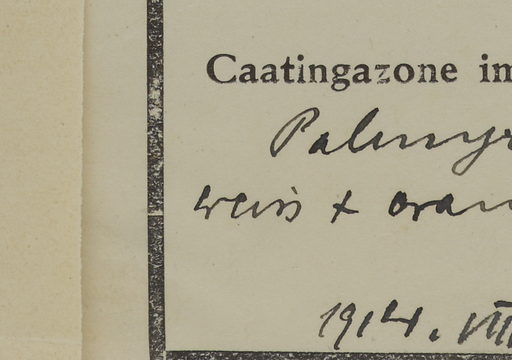 Caatingazone im
Palmyr
weiss + oran
1914. VIII